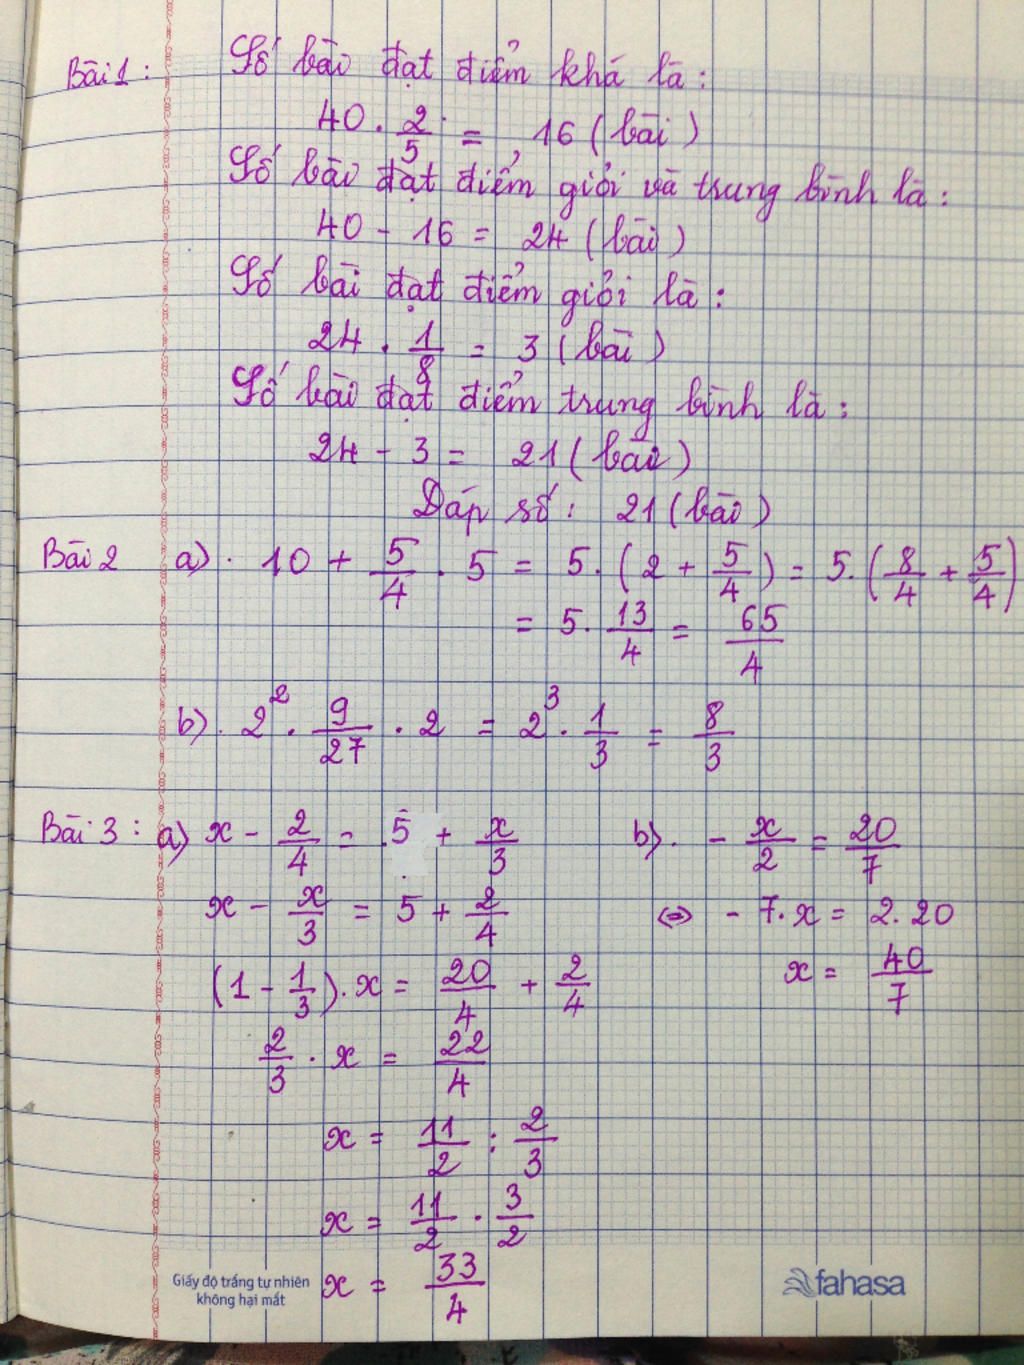 Bài 1 : Số bài đạt điểm khá là :
40 . 2/5 = 16 ( bài )
Số bài đạt điểm giỏi và trung bình là :
40 - 16 = 24 ( bài )
Số bài đạt điểm giỏi là :
24 . 1/8 = 3 ( bài )
Số bài đạt điểm trung bình là :
24 - 3 = 21 ( bài )
Đáp số : 21 ( bài )
Bài 2 a) . 10 + 5/4 . 5 = 5. ( 2 + 5/4 ) = 5. ( 8/4 + 5/4 )
= 5. 13/4 = 65/4
b) . 2² . 9/27 . 2 = 2³ . 1/3 = 8/3
Bài 3 : a) x - 2/4 = 5 + x/3
x - x/3 = 5 + 2/4
(1 - 1/3) . x = 20/4 + 2/4
2/3 . x = 22/4
x = 11/2 : 2/3
x = 11/2 . 3/2
x = 33/4
b) . - x/2 = 20/7
⇔ - 7. x = 2. 20
x = 40/7
Giấy độ trắng tự nhiên
không hại mắt
fahasa